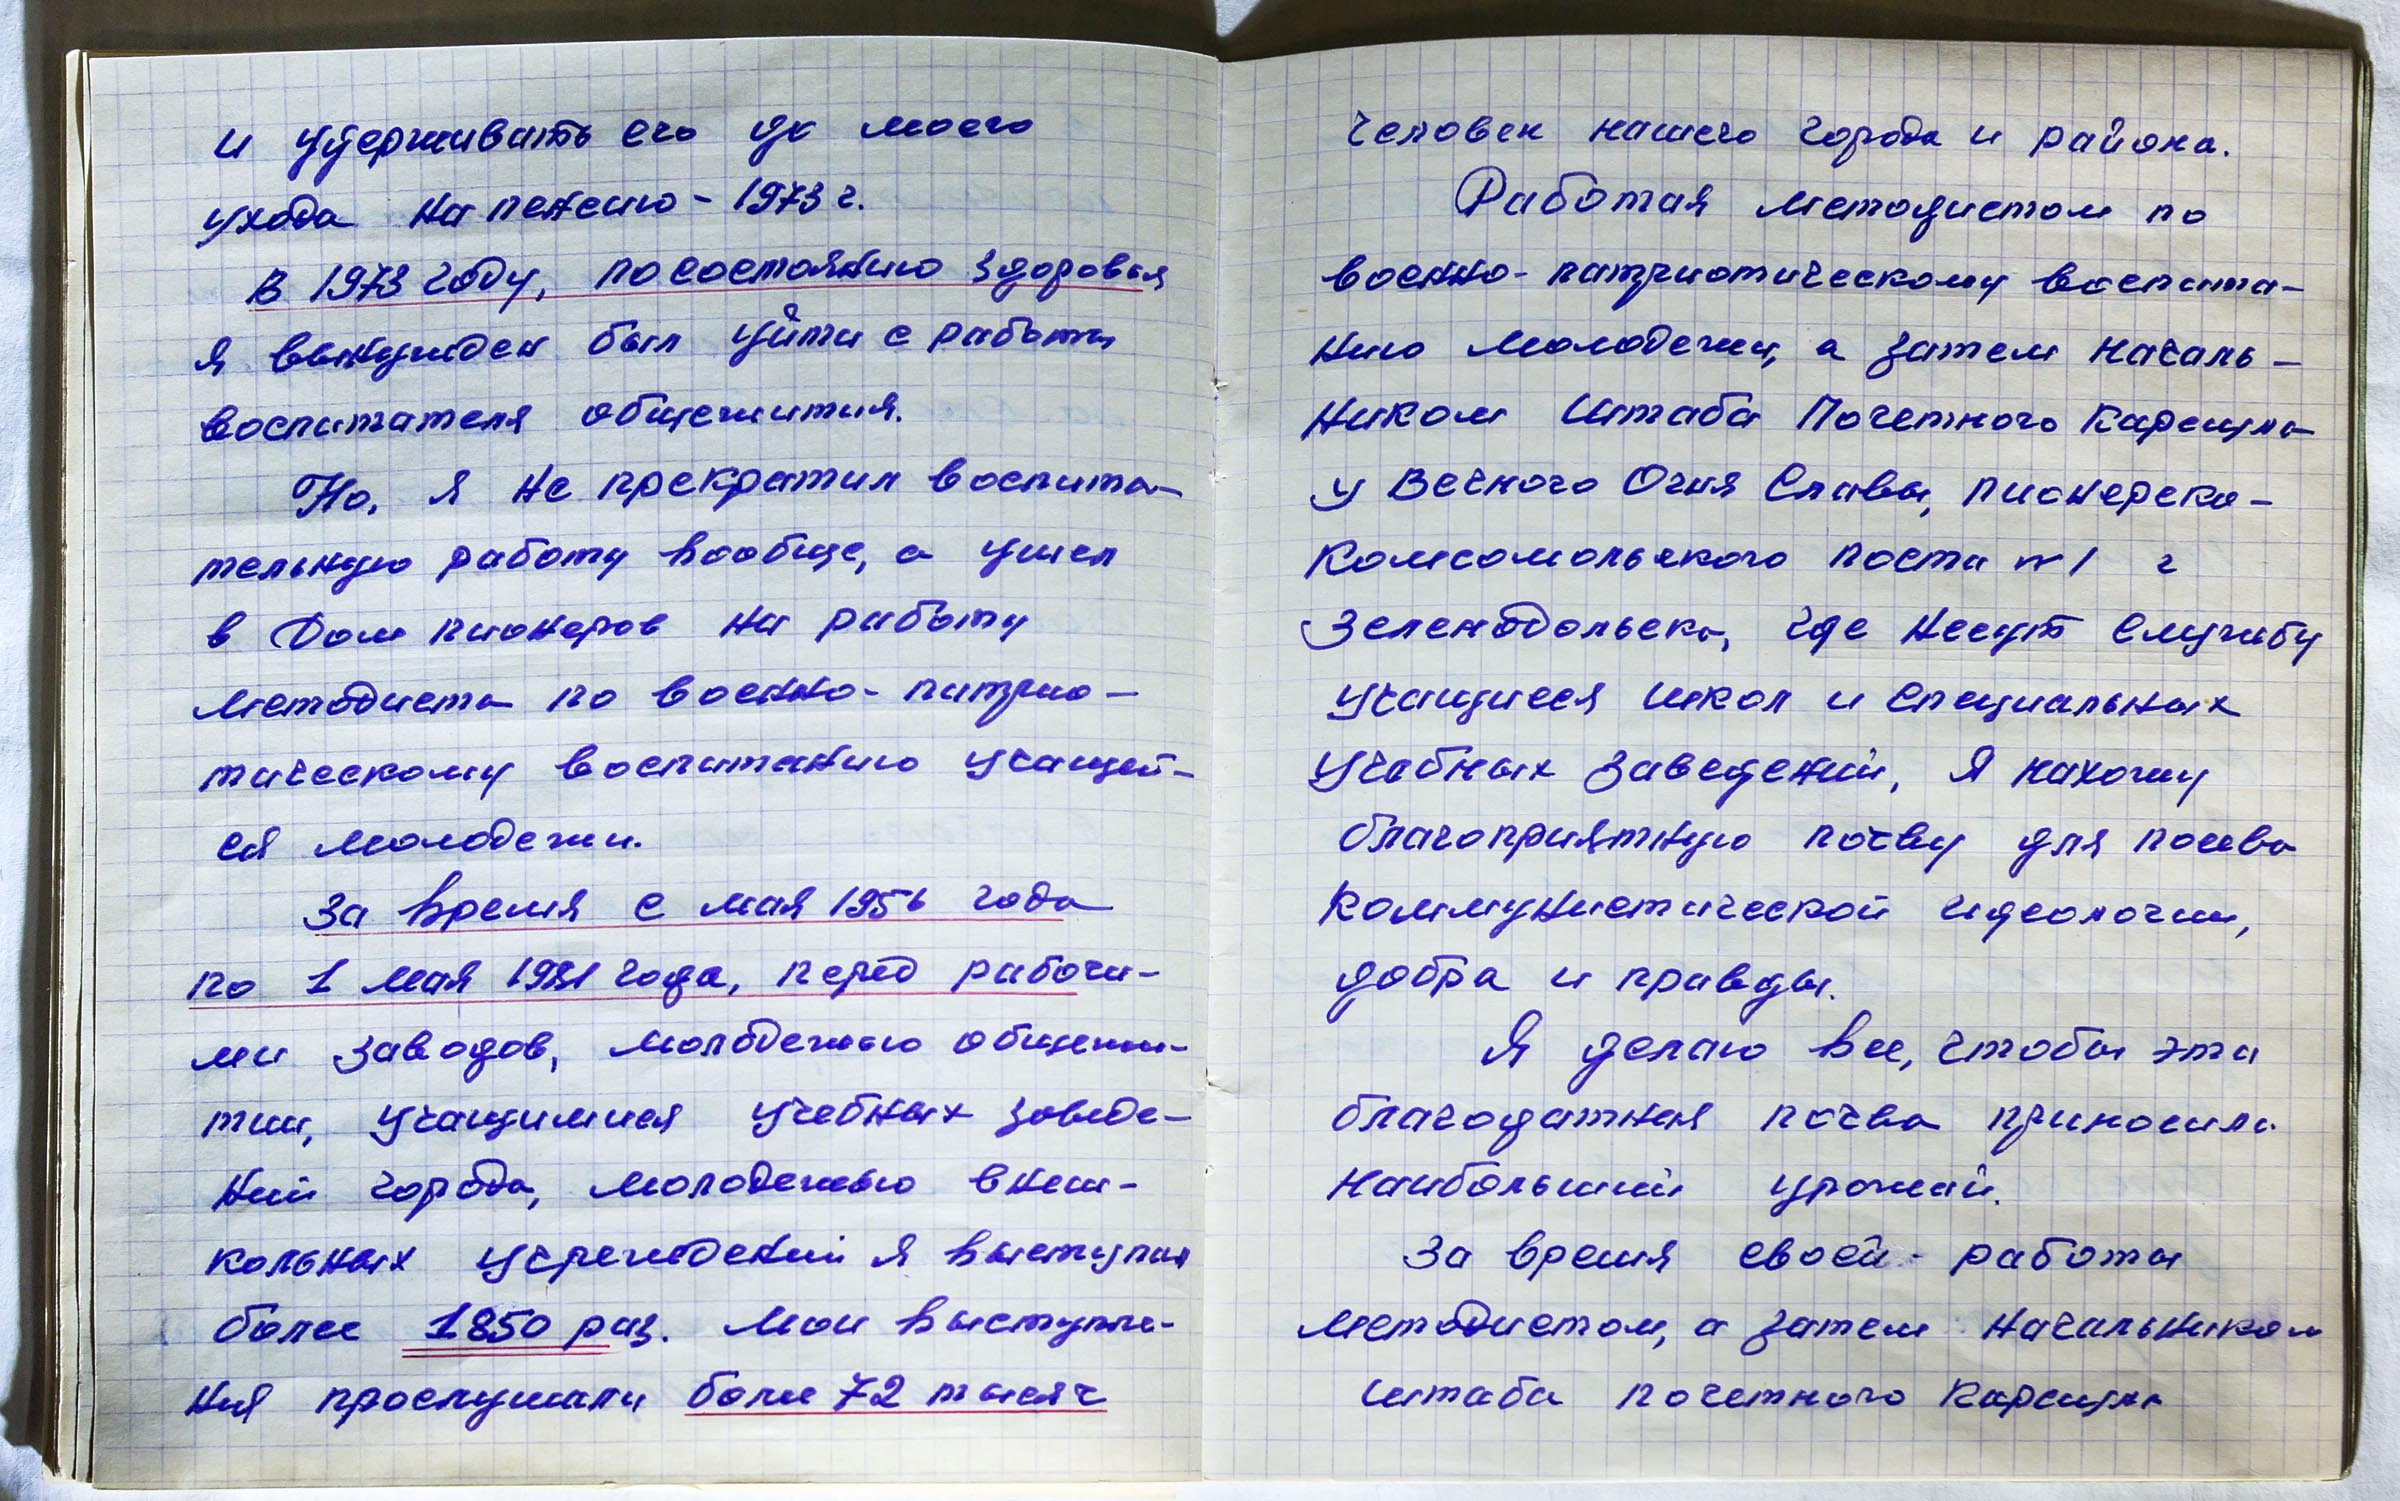 и удерживать его до моего
ухода на пенсию - 1973 г.
В 1973 году, по состоянию здоровья
я вынужден был уйти с работы
воспитателя общежития.
Но, я не прекратил воспита-
тельную работу вообще, а ушел
в Дом пионеров на работу
методиста по военно-патрио-
тическому воспитанию учащей-
ся молодежи.
За время с мая 1956 года
по 1 мая 1981 года, перед рабочи-
ми заводов, молодежью общежи-
тии, учащимися учебных заведе-
ний города, молодежью внеш-
кольных учреждений я выступал
более 1850 раз. Мои выступле-
ния прослушали более 72 тысяч
человек нашего города и района.
Работая методистом по
военно-патриотическому воспита-
нию молодежи, а затем началь-
ником Штаба Почетного Караула
у Вечного Огня Славы, пионерско-
комсомольского поста №1 г
Зеленодольска, где несут службу
учащиеся школ и специальных
учебных заведений, я нахожу
благоприятную почву для посева
коммунистической идеологии,
добра и правды.
Я делаю все, чтобы эта
благодатная почва приносила
наибольший урожай.
За время своей - работы
методистом, а затем начальником
штаба почетного караула